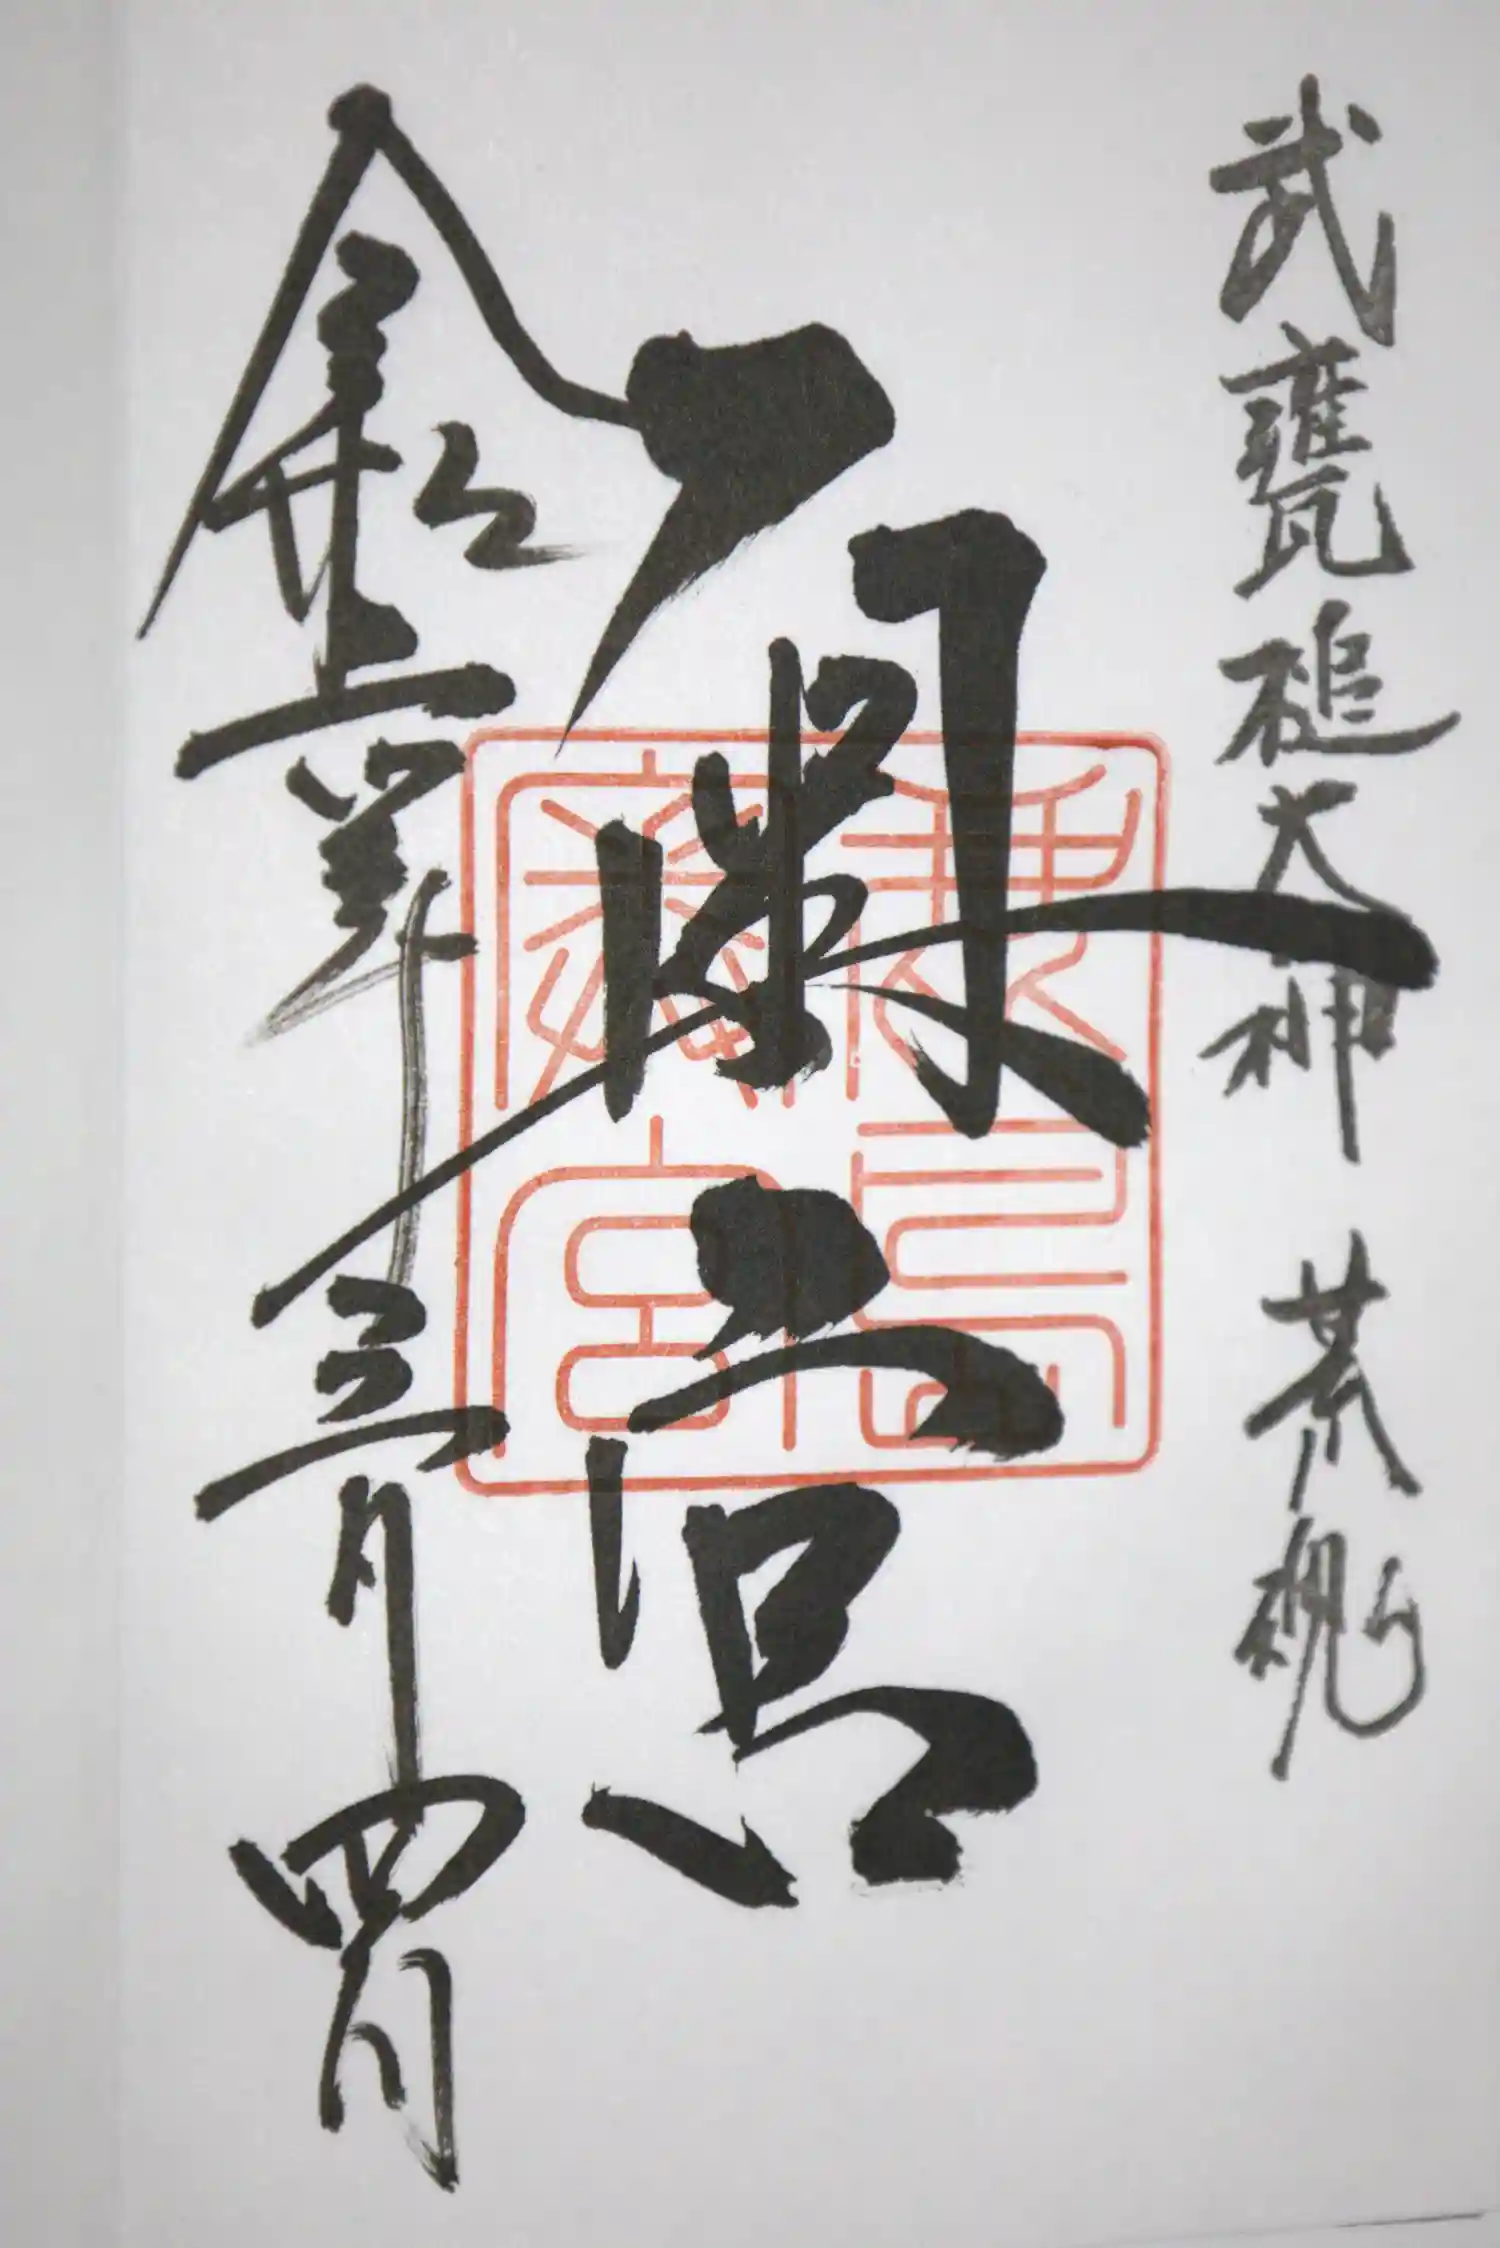 武甕槌大神 荒魂
奥宮
鹿島
奥宮
令和五年三月四日